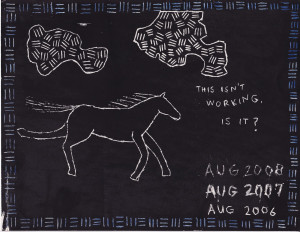 THIS ISN'T
WORKING.
IS IT?
AUG 2008
AUG 2007
AUG 2006